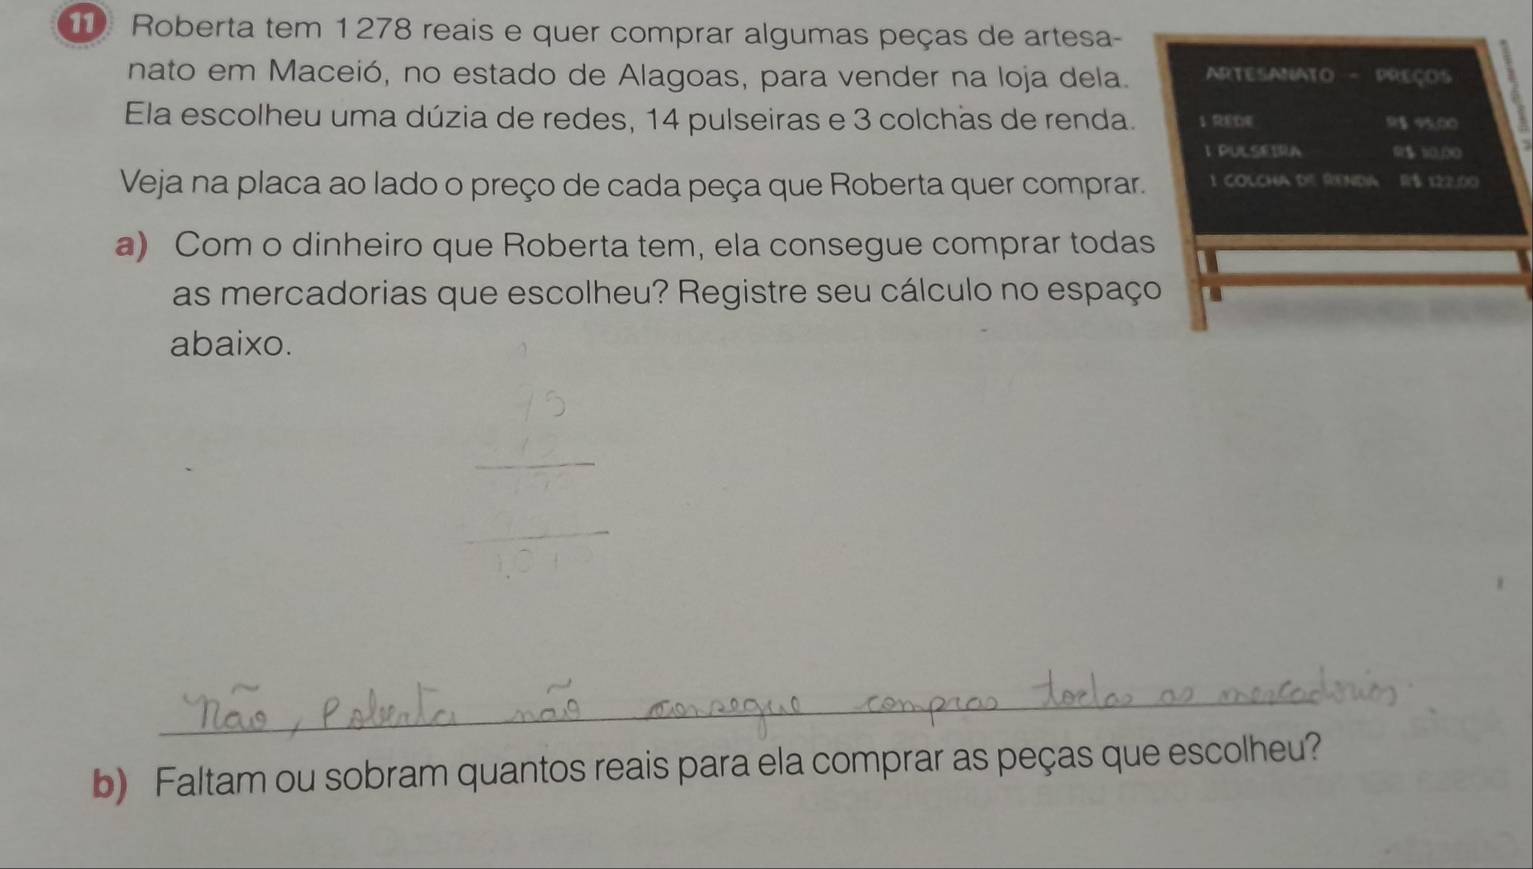 11 Roberta tem 1278 reais e quer comprar algumas peças de artesa-
nato em Maceió, no estado de Alagoas, para vender na loja dela.
Ela escolheu uma dúzia de redes, 14 pulseiras e 3 colchas de renda.
Veja na placa ao lado o preço de cada peça que Roberta quer comprar.
ARTESANATO - PREÇOS
1 REDE R$ 95,00
1 PULSEIRA R$ 10,00
1 COLCHA DE RENDA R$ 122,00
a) Com o dinheiro que Roberta tem, ela consegue comprar todas
as mercadorias que escolheu? Registre seu cálculo no espaço
abaixo.
não, Roberta não consegue compras todas as mercadorias.
b) Faltam ou sobram quantos reais para ela comprar as peças que escolheu?